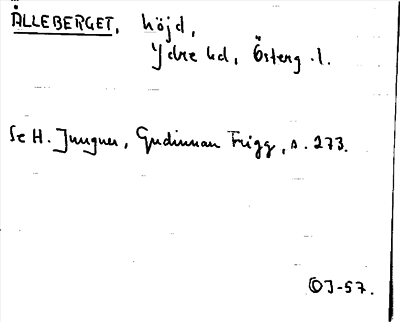 ÅLLEBERGET, höjd,
Ydre hd, Österg. l.
Se H. Jungner, Gudinnan Frigg, s. 273.
OJ-57.